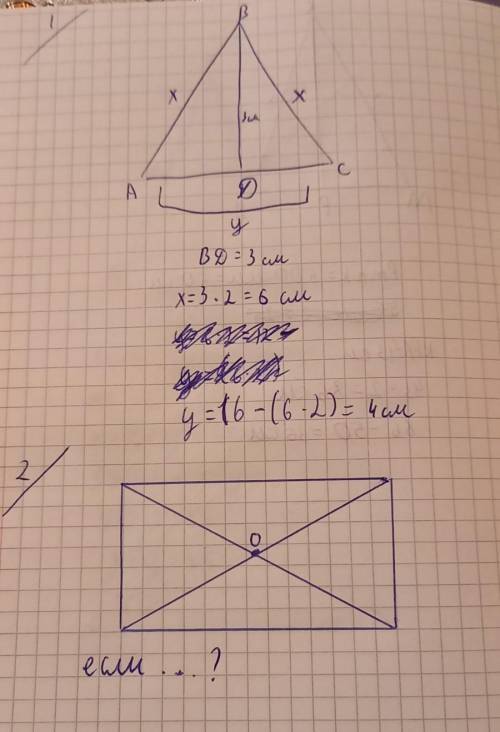 1
B
x
x
3см
A
D
C
y
BD = 3 см
x = 3 · 2 = 6 см
y = 16 - (6 · 2) = 4 см
2
O
если ... ?